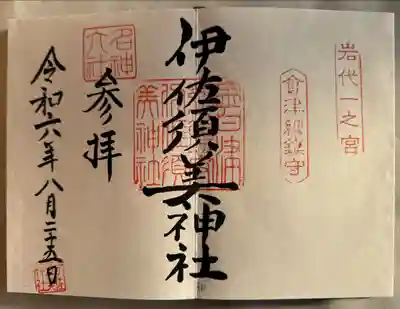 岩代一之宮
會津総鎮守
伊佐須美神社
参拝
名神大社
令和六年八月二十五日